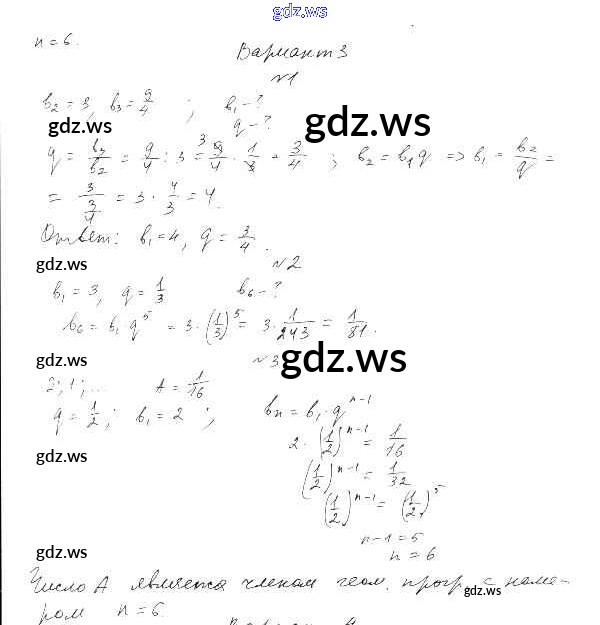 gdz.ws
n = 6.
Вариант 3
№1
b₂ = 3, b₃ = 9/4 ; b₁ - ?
gdz.ws
q - ?
gdz.ws
q = b₃/b₂ = 9/4 : 3 = 9/4 · 1/3 = 3/4 ; b₂ = b₁q => b₁ = b₂/q =
= 3/(3/4) = 3 · 4/3 = 4.
Ответ: b₁ = 4, q = 3/4.
gdz.ws
№2
b₁ = 3, q = 1/3 b₆ - ?
b₆ = b₁q⁵ = 3 · (1/3)⁵ = 3 · 1/243 = 1/81.
gdz.ws
№3
gdz.ws
2; 1; ... A = 1/16
q = 1/2 ; b₁ = 2 ; bn = b₁ · q^(n-1)
2 · (1/2)^(n-1) = 1/16
gdz.ws
(1/2)^(n-1) = 1/32
(1/2)^(n-1) = (1/2)⁵
n - 1 = 5
gdz.ws
n = 6
Число A является членом геом. прогр. с номе-
gdz.ws
ром n = 6.